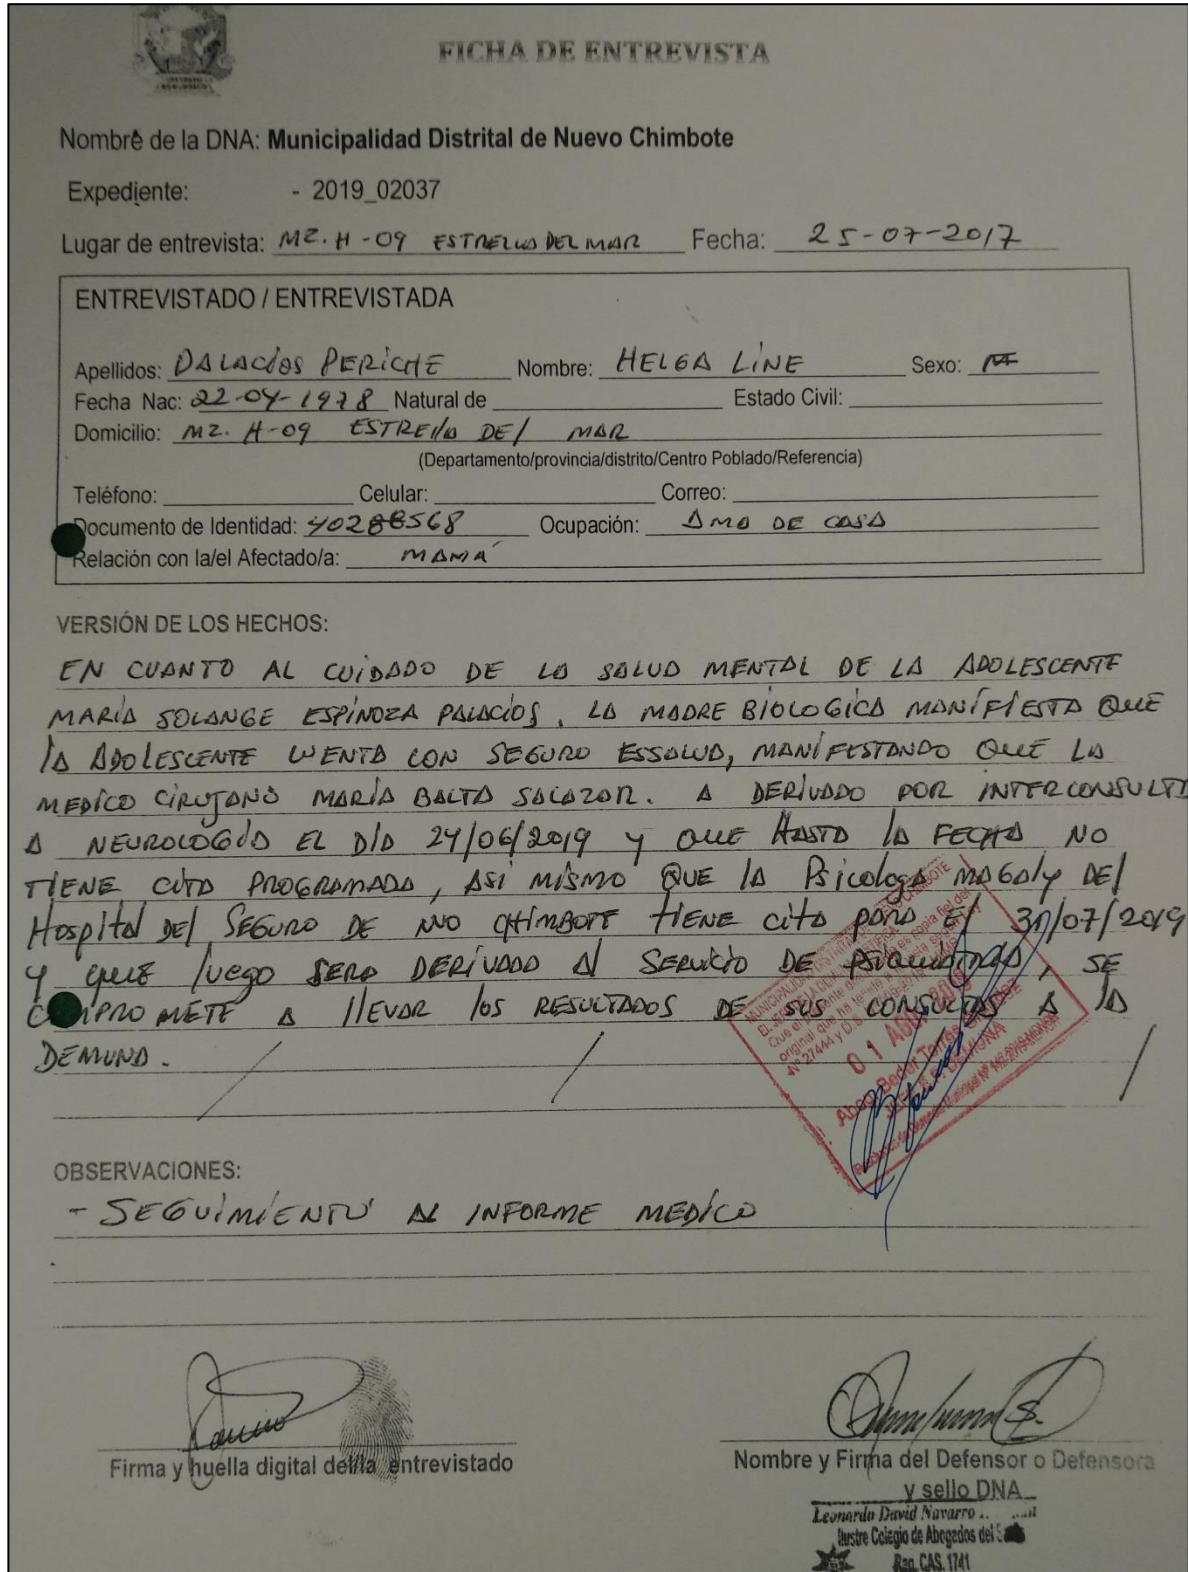 FICHA DE ENTREVISTA
Nombre de la DNA: Municipalidad Distrital de Nuevo Chimbote
Expediente: - 2019_02037
Lugar de entrevista: MZ. H-09 ESTRELLA DEL MAR Fecha: 25-07-2017
ENTREVISTADO / ENTREVISTADA
Apellidos: PALACIOS PERICHE Nombre: HELGA LINE Sexo:
Fecha Nac: 22-04-1978 Natural de Estado Civil:
Domicilio: MZ. H-09 ESTRELLA DEL MAR
(Departamento/provincia/distrito/Centro Poblado/Referencia)
Teléfono: Celular: Correo:
Documento de Identidad: 40288568 Ocupación: AMA DE CASA
Relación con la/el Afectado/a: MAMÁ
VERSIÓN DE LOS HECHOS:
EN CUANTO AL CUIDADO DE LA SALUD MENTAL DE LA ADOLESCENTE
MARÍA SOLANGE ESPINOZA PALACIOS, LA MADRE BIOLOGICA MANIFIESTA QUE
LA ADOLESCENTE CUENTA CON SEGURO ESSALUD, MANIFESTANDO QUE LA
MEDICO CIRUJANO MARÍA BALTA SALAZAR. A DERIVADO POR INTERCONSULTA
A NEUROLOGIA EL DIA 24/06/2019 Y QUE HASTA LA FECHA NO
TIENE CITA PROGRAMADA, ASI MISMO QUE LA Psicologa MAGALY DEL
Hospital DEL SEGURO DE NVO CHIMBOTE TIENE CITA PARA EL 31/07/2019
Y QUE LUEGO SERA DERIVADO AL SERVICIO DE PSIQUIATRIA, SE
COMPROMETE A LLEVAR LOS RESULTADOS DE SUS CONSULTAS A LA
DEMUNA.
01 AGO. 2019
OBSERVACIONES:
- SEGUIMIENTO AL INFORME MEDICO
Firma y huella digital del/la entrevistado
Nombre y Firma del Defensor o Defensora
y sello DNA
Leonardo David Navarro
Ilustre Colegio de Abogados del Santa
Reg. CAS. 1741